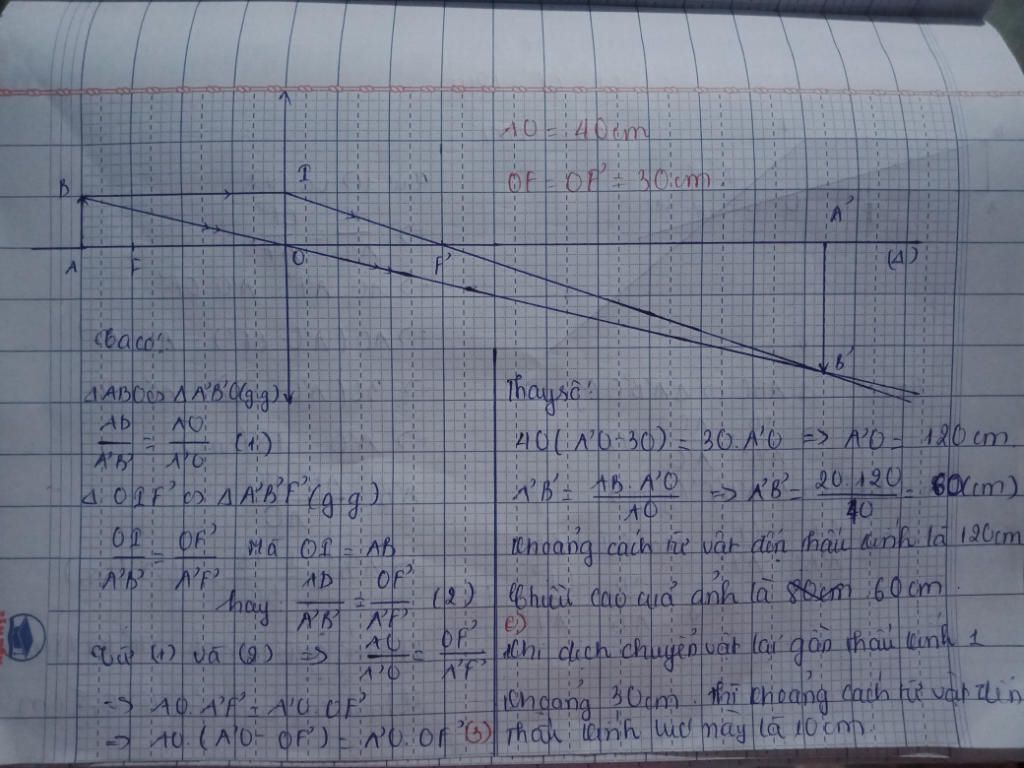 AO = 40cm
OF = OF' = 30cm.
B
I
A'
A
F
O
F'
(Δ)
B'
Δ ABO ∽ Δ A'B'O (g.g)
AB/A'B' = AO/A'O (1)
Δ OIF' ∽ Δ A'B'F' (g.g)
OI/A'B' = OF'/A'F' Mà OI = AB
hay AB/A'B' = OF'/A'F' (2)
Từ (1) và (2) => AO/A'O = OF'/A'F'
=> AO.A'F' = A'O.OF'
=> AO.(A'O - OF') = A'O.OF' (3)
Thay số:
40(A'O-30) = 30.A'O => A'O = 120cm
A'B' = AB.A'O/AO => A'B' = 20.120/40 = 60(cm)
Khoảng cách từ vật đến thấu kính là 120cm
Chiều cao của ảnh là 60cm.
c)
Khi dịch chuyển vật lại gần thấu kính 1
khoảng 30cm. Thì khoảng cách từ vật đến
thấu kính lúc này là 10cm.